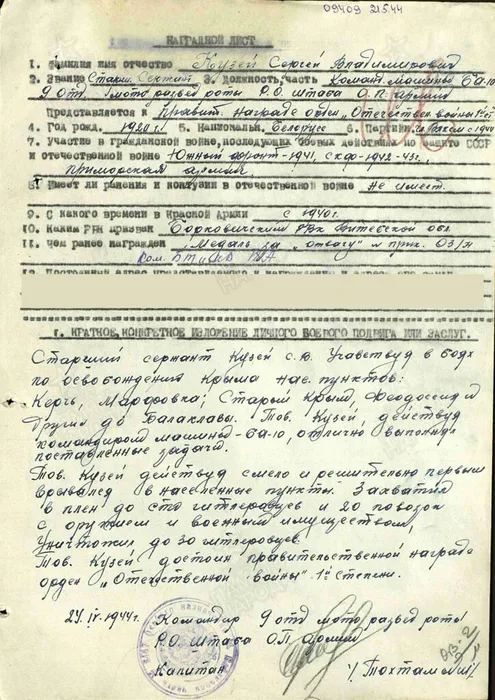 09409 21.5.44
НАГРАДНОЙ ЛИСТ
1. Фамилия имя отчество Кузей Сергей Владимирович
2. Звание Старш. Сержант 3. Должность, часть Команд. машины БА-10
9 отд. мото развед роты Р.О. штаба О.П. армии
Представляется к Правит. награде орден „Отечествен войны"
4. Год рожд. 1920г. 5. Национальн. Белорус 6. Партийн.
7. Участие в гражданской войне, последующих боевых действиях по защите СССР
и отечественной войне Южный фронт-1941, СКФ-1942-43г.,
Приморская армия,
8. Имеет ли ранения и контузии в отечественной войне Не имеет.
9. С какого времени в Красной Армии с 1940г.
10. Каким РВК призван РВК Витебской обл.
11. Чем ранее награжден „Медаль за „отвагу" прик.
1. КРАТКОЕ, КОНКРЕТНОЕ ИЗЛОЖЕНИЕ ЛИЧНОГО БОЕВОГО ПОДВИГА ИЛИ ЗАСЛУГ.
Старший сержант Кузей Участвуя в боях
по освобождения Крыма нас. пунктов:
Керчь, Марфовка; Старый Крым, Феодоссия и
другие до Балаклавы. Тов. Кузей, действуя
командиром машины-БА-10, отлично выполнял
поставленные задачи.
Тов. Кузей действуя смело и решительно первым
врывался в населенные пункты. Захватил
в плен до сто гитлеровцев и 20 повозок
с оружием и военным имуществом,
Уничтожил до 30 гитлеровцев.
Тов. Кузей достоин правительственной награде
орден „Отечественной войны" 1й степени.
24.IV.1944г. Командир 9 отд мото развед роты
Р.О. Штаба О.П. Армии
Капитан /Тохтамыш/